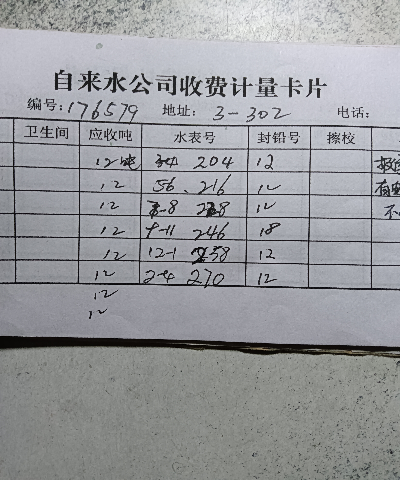 自来水公司收费计量卡片
编号:176579 地址: 3-302 电话:
卫生间 应收吨 水表号 封铅号 擦校
12吨 34 204 12
12 56 216 12 有
12 7-8 228 12 不
12 9-11 246 18
12 12-1 258 12
12 2-4 270 12
12
12